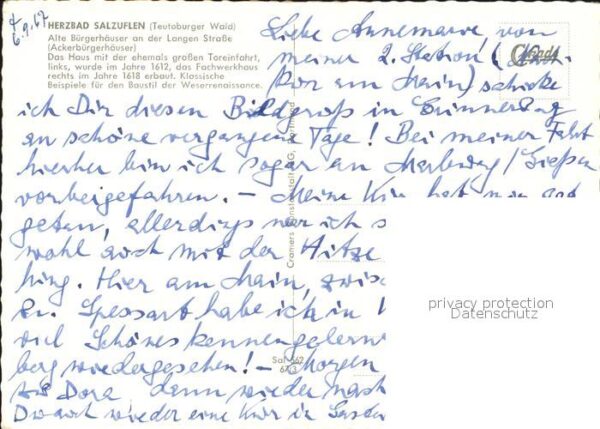 HERZBAD SALZUFLEN (Teutoburger Wald)
Alte Bürgerhäuser an der Langen Straße
(Ackerbürgerhäuser)
Das Haus mit der ehemals großen Toreinfahrt,
links, wurde im Jahre 1612, das Fachwerkhaus
rechts im Jahre 1618 erbaut. Klassische
Beispiele für den Baustil der Weserrenaissance.
6.9.67
Liebe Annemarie, von
meiner 2. Station (
am Main) schicke
ich Dir diesen Bildgruß in Erinnerung
an schöne vergangene Tage! Bei meiner Fahrt
hierher bin ich sogar an Marburg/Gießen
vorbeigefahren. – Meine Kur hat mir gut
getan, allerdings war ich s
wohl auch mit der Hitze
hing. Hier am Main, zwisc
Spessart habe ich in
viel Schönes kennengelern
berg wiedergesehen! – Morgen
Dora dann wieder nach
wieder eine Kur in
Cramers Kunstanstalt KG, Dortmund
Sal 562
privacy protection
Datenschutz